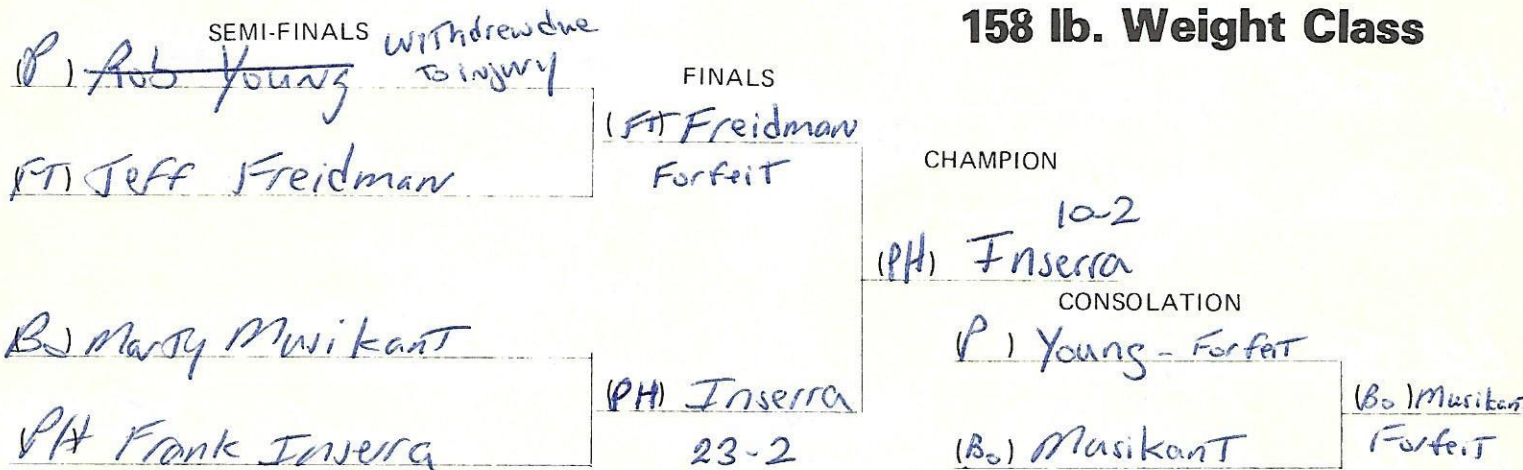 158 lb. Weight Class
SEMI-FINALS
(P) Rob Young withdrew due
to injury
(FT) Jeff Freidman
(Bo) Marty Musikant
PH Frank Inserra
FINALS
(FT) Freidman
Forfeit
(PH) Inserra
23-2
CHAMPION
10-2
(PH) Inserra
CONSOLATION
(P) Young - Forfeit
(Bo) Musikant
(Bo) Musikant
Forfeit